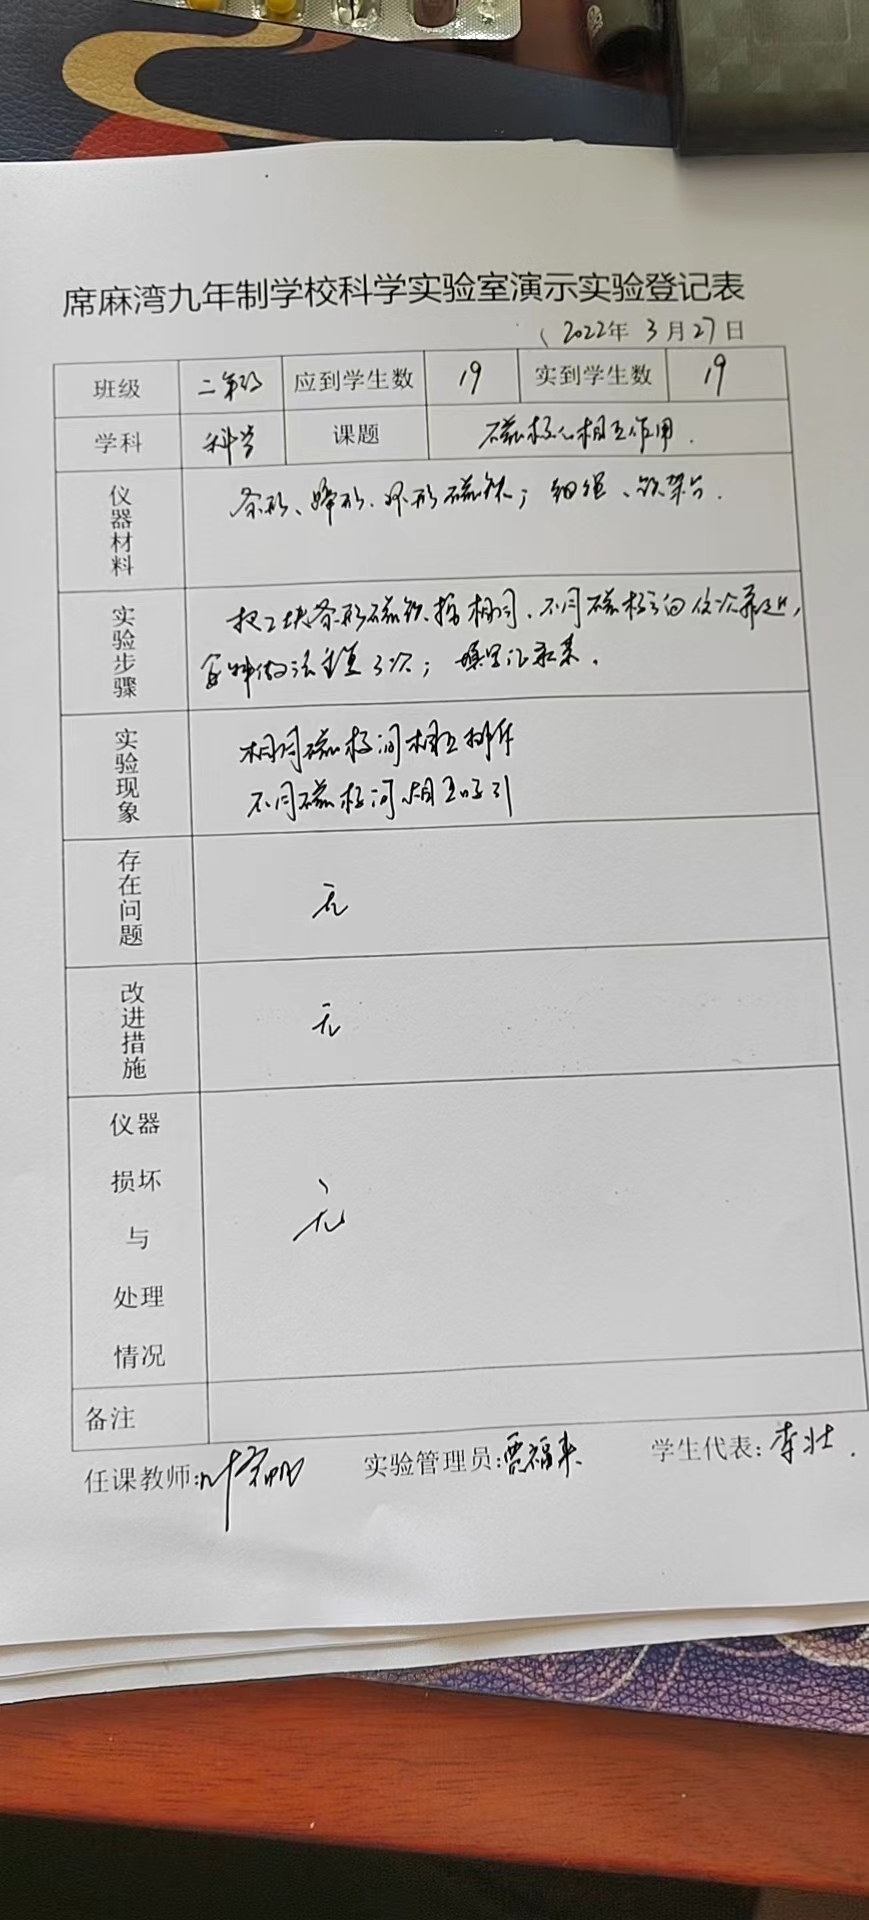 席麻湾九年制学校科学实验室演示实验登记表
2022年 3月27日
班级 二年级 应到学生数 19 实到学生数 19
学科 科学 课题 磁极的相互作用.
仪器材料 条形、蹄形、环形磁铁; 细绳、铁架台.
实验步骤 把2块条形磁铁按相同、不同磁极的依次靠近,
每种做法重复3次; 填写记录表.
实验现象 相同磁极间相互排斥
不同磁极间相互吸引
存在问题 无
改进措施 无
仪器损坏与处理情况 无
备注
任课教师: 实验管理员:贾福来 学生代表:李壮.